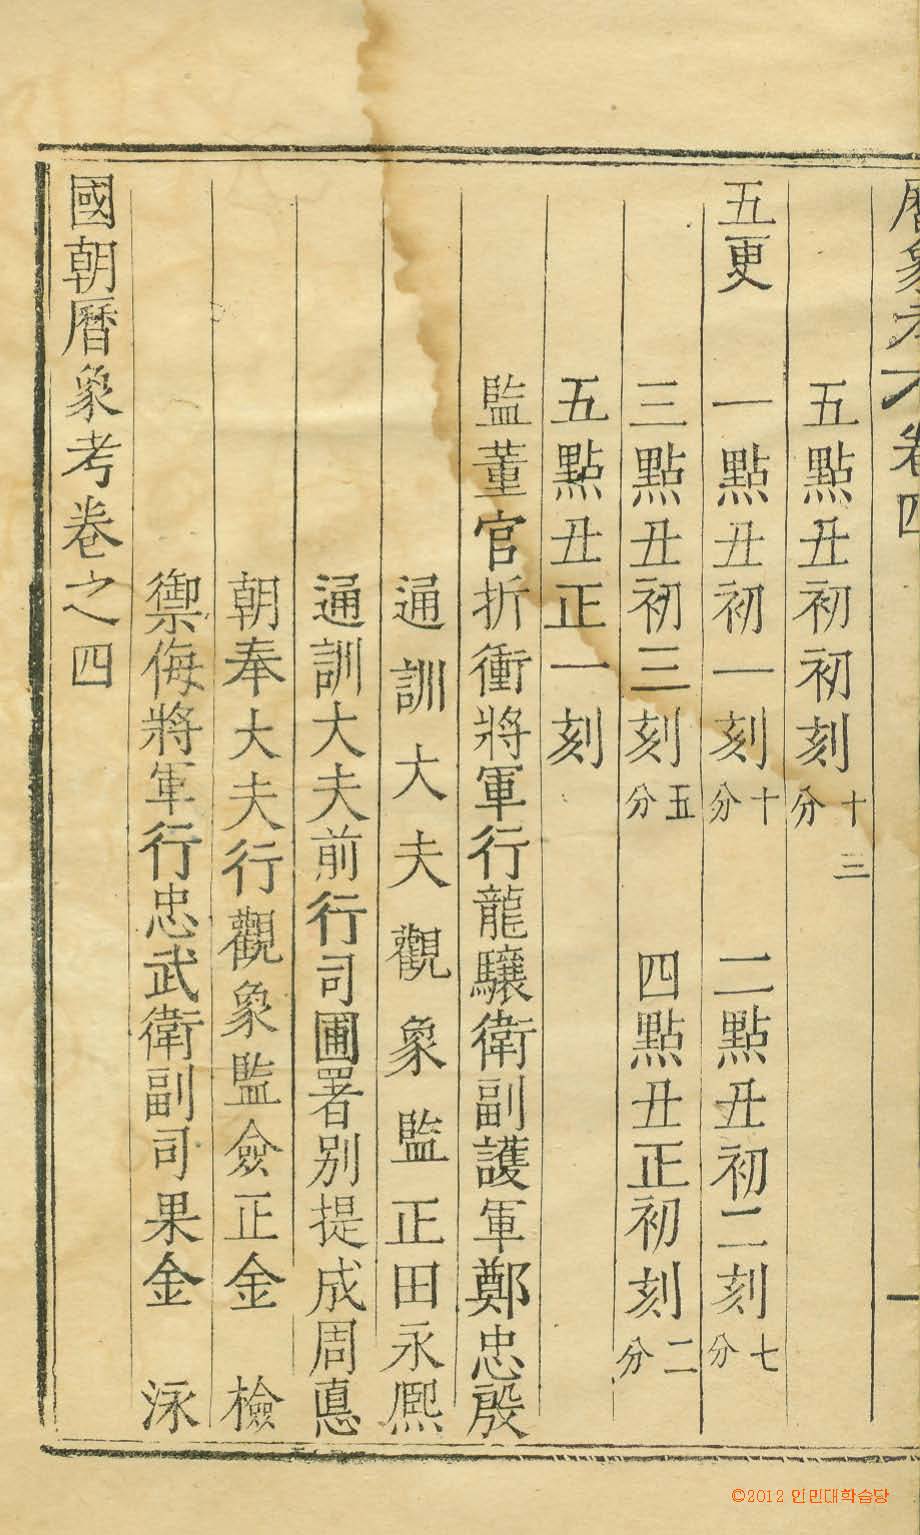 曆象考 卷四
五點丑初初刻十三分
五更 一點丑初一刻十分 二點丑初二刻七分
三點丑初三刻五分 四點丑正初刻二分
五點丑正一刻
監董官折衝將軍行龍驤衛副護軍鄭忠殷
通訓大夫觀象監正田永熈
通訓大夫前行司圃署別提成周悳
朝奉大夫行觀象監僉正金檢
禦侮將軍行忠武衛副司果金泳
國朝曆象考卷之四
©2012 인민대학습당